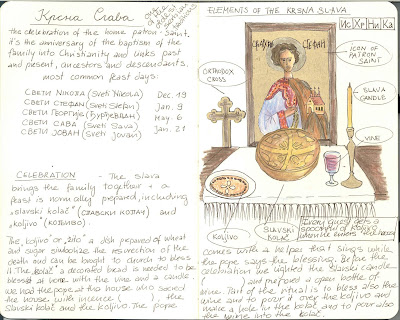 Крсна Слава
the celebration of the home patron-saint.
it's the anniversary of the baptism of the
family into Christianity and links past
and present, ancestors and descendants,
most common feast days:
СВЕТИ NIKOЛА (Sveti Nikola) Dec. 19
СВЕТИ СТЕФАН (Sveti Stefan) Jan. 9
СВЕТИ ГЕОРГИЈЕ (Ђурђевдан) May. 6
СВЕТИ САВА (Sveti Sava)
СВЕТИ ЈОВАН (Sveti Jovan) Jan. 21
CELEBRATION - The slava
brings the family together + a
feast is normally prepared, including
"slavski kolač" (СЛАВСКИ КОЛАЧ) and
"koljivo" (КОЉИВО).
The koljivo or "žito" a dish prepared of wheat
and sugar simbolizes the resurection of the
death and can be brought to church to bless
it. The "kolač" a decorated bread is needed to be
blessed at home with the wine and a candle.
we had the pope at the house who sacred
the house with incence ( ) of the
slavski kolač and the koljivo. The pope
ELEMENTS OF THE KRSNA SLAVA
Ис Хр Ни Ка
ORTHODOX
CROSS
СТЕФАН
ICON OF
PATRON
SAINT
SLAVA
CANDLE
VINE
KOLJIVO
SLAVSKI
KOLAČ
Every guest gets a
spoonful of koljivo
when he enters the house
comes with a helper that sings while
the pope says the blessings. Before the
celebration we lighted the slavski candle
( ) and prefored a open bottle of
wine. Part of the ritual is to bless also the
wine and to pour it over the koljivo and
make a hole in the kolač and to pour also
the wine into the kolač.